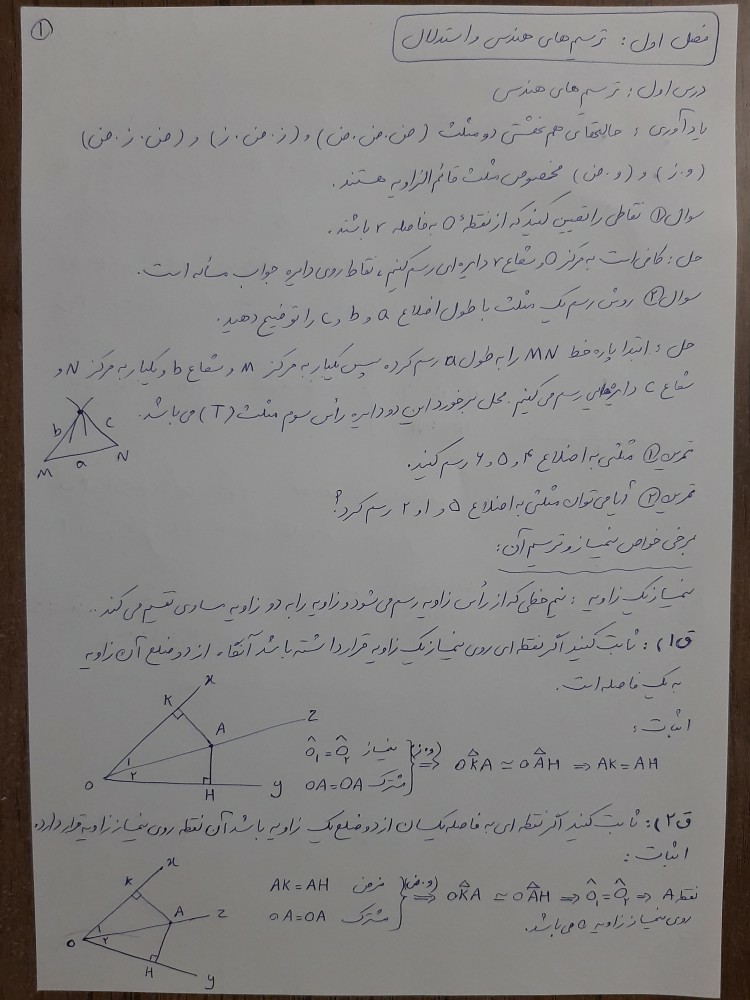 ۱
فصل اول: ترسیم های هندسی و استدلال
درس اول: ترسیم های هندسی
یادآوری: حالتهای هم نهشتی دو مثلث (ض.ض.ض) و (ز.ض.ز) و (ض.ز.ض)
(و.ز) و (و.ض) مخصوص مثلث قائم الزاویه هستند.
سوال ۱ نقاطی را تعیین کنید که از نقطهٔ O به فاصله ۲ باشند.
حل: کافی است به مرکز O و شعاع ۲ دایره ای رسم کنیم، نقاط روی دایره جواب مسأله است.
سوال ۲ روش رسم یک مثلث با طول اضلاع a و b و c را توضیح دهید.
حل: ابتدا پاره خط MN را به طول a رسم کرده سپس یکبار به مرکز M و شعاع b و یکبار به مرکز N و
شعاع c دایره هایی رسم می کنیم. محل برخورد این دو دایره رأس سوم مثلث (T) می باشد.
b c
M a N
تمرین ۱ مثلثی به اضلاع ۴ و ۵ و ۶ رسم کنید.
تمرین ۲ آیا می توان مثلثی به اضلاع ۵ و ۱ و ۲ رسم کرد؟
برخی خواص نیمساز و ترسیم آن:
نیمساز یک زاویه: نیم خطی که از رأس زاویه رسم می شود و زاویه را به دو زاویه مساوی تقسیم می کند.
ق۱): ثابت کنید اگر نقطه ای روی نیمساز یک زاویه قرار داشته باشد آنگاه از دو ضلع آن زاویه
به یک فاصله است.
اثبات:
x K A z O 1 2 H y
نیمساز Ô₁=Ô₂
مشترک OA=OA
(و.ز) ⇒ OK̂A ≃ OÂH ⇒ AK=AH
ق۲): ثابت کنید اگر نقطه ای به فاصله یکسان از دو ضلع یک زاویه باشد آن نقطه روی نیمساز زاویه قرار دارد.
اثبات:
x K A z O 1 2 H y
فرض AK=AH
مشترک OA=OA
(و.ض) ⇒ OK̂A ≃ OÂH ⇒ Ô₁=Ô₂ ⇒ نقطه A
روی نیمساز زاویه O می باشد.